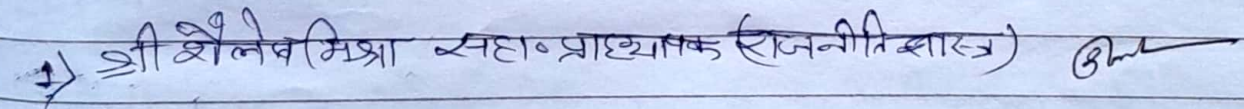 1) श्री शैलेष मिश्रा सहा० प्राध्यापक (राजनीति शास्त्र)